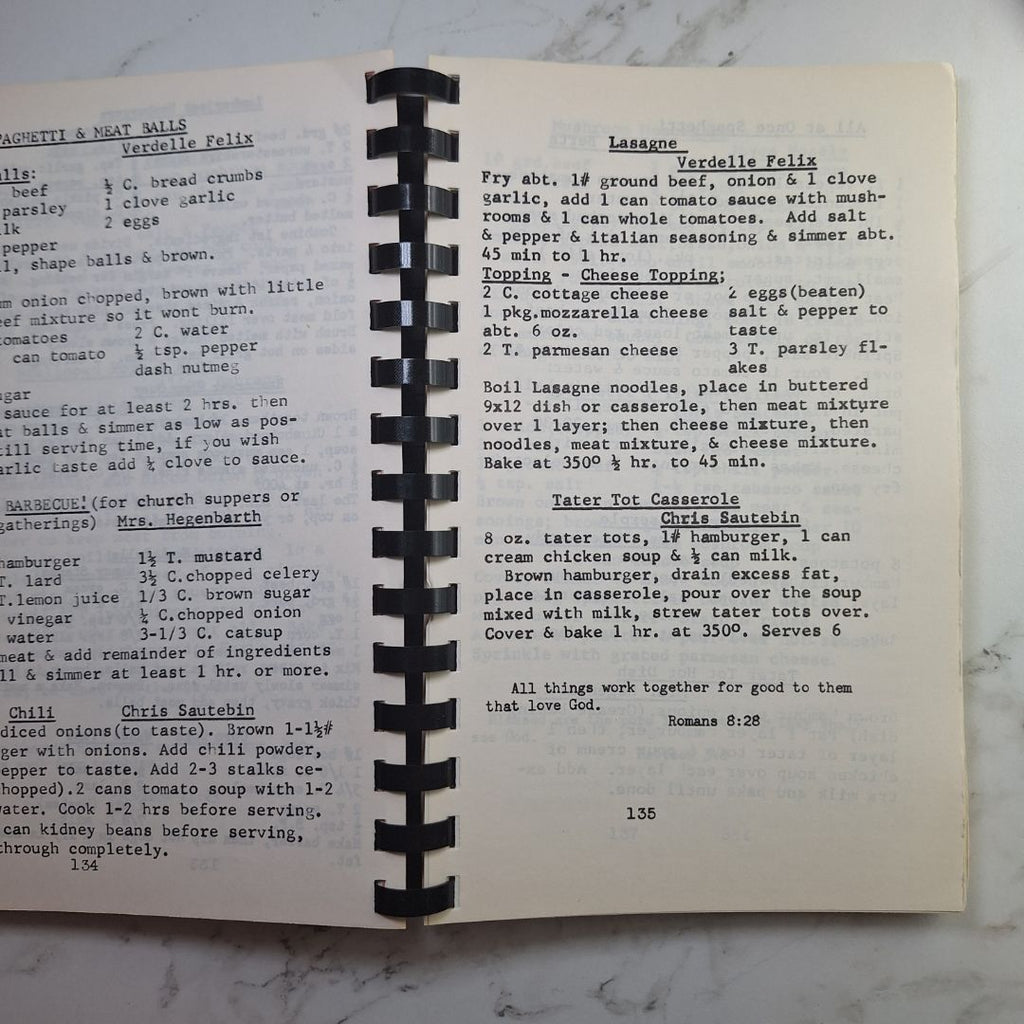 PAGHETTI & MEAT BALLS
Verdelle Felix
alls:
beef ½ C. bread crumbs
parsley 1 clove garlic
lk 2 eggs
pepper
l, shape balls & brown.
m onion chopped, brown with little
eef mixture so it wont burn.
omatoes 2 C. water
can tomato ½ tsp. pepper
dash nutmeg
gar
sauce for at least 2 hrs. then
at balls & simmer as low as pos-
till serving time, if you wish
arlic taste add ½ clove to sauce.
BARBECUE! (for church suppers or
gatherings) Mrs. Hegenbarth
hamburger 1½ T. mustard
T. lard 3½ C.chopped celery
T.lemon juice 1/3 C. brown sugar
vinegar C.chopped onion
water 3-1/3 C. catsup
meat & add remainder of ingredients
ll & simmer at least 1 hr. or more.
Chili Chris Sautebin
diced onions(to taste). Brown 1-1½#
ger with onions. Add chili powder,
epper to taste. Add 2-3 stalks ce-
hopped).2 cans tomato soup with 1-2
water. Cook 1-2 hrs before serving.
can kidney beans before serving,
through completely.
134
Lasagne
Verdelle Felix
Fry abt. 1# ground beef, onion & 1 clove
garlic, add 1 can tomato sauce with mush-
rooms & 1 can whole tomatoes. Add salt
& pepper & italian seasoning & simmer abt.
45 min to 1 hr.
Topping - Cheese Topping;
2 C. cottage cheese 2 eggs(beaten)
1 pkg.mozzarella cheese salt & pepper to
abt. 6 oz. taste
2 T. parmesan cheese 3 T. parsley fl-
akes
Boil Lasagne noodles, place in buttered
9x12 dish or casserole, then meat mixture
over 1 layer; then cheese mixture, then
noodles, meat mixture, & cheese mixture.
Bake at 350º ½ hr. to 45 min.
Tater Tot Casserole
Chris Sautebin
8 oz. tater tots, 1# hamburger, 1 can
cream chicken soup & ½ can milk.
Brown hamburger, drain excess fat,
place in casserole, pour over the soup
mixed with milk, strew tater tots over.
Cover & bake 1 hr. at 350º. Serves 6
All things work together for good to them
that love God.
Romans 8:28
135